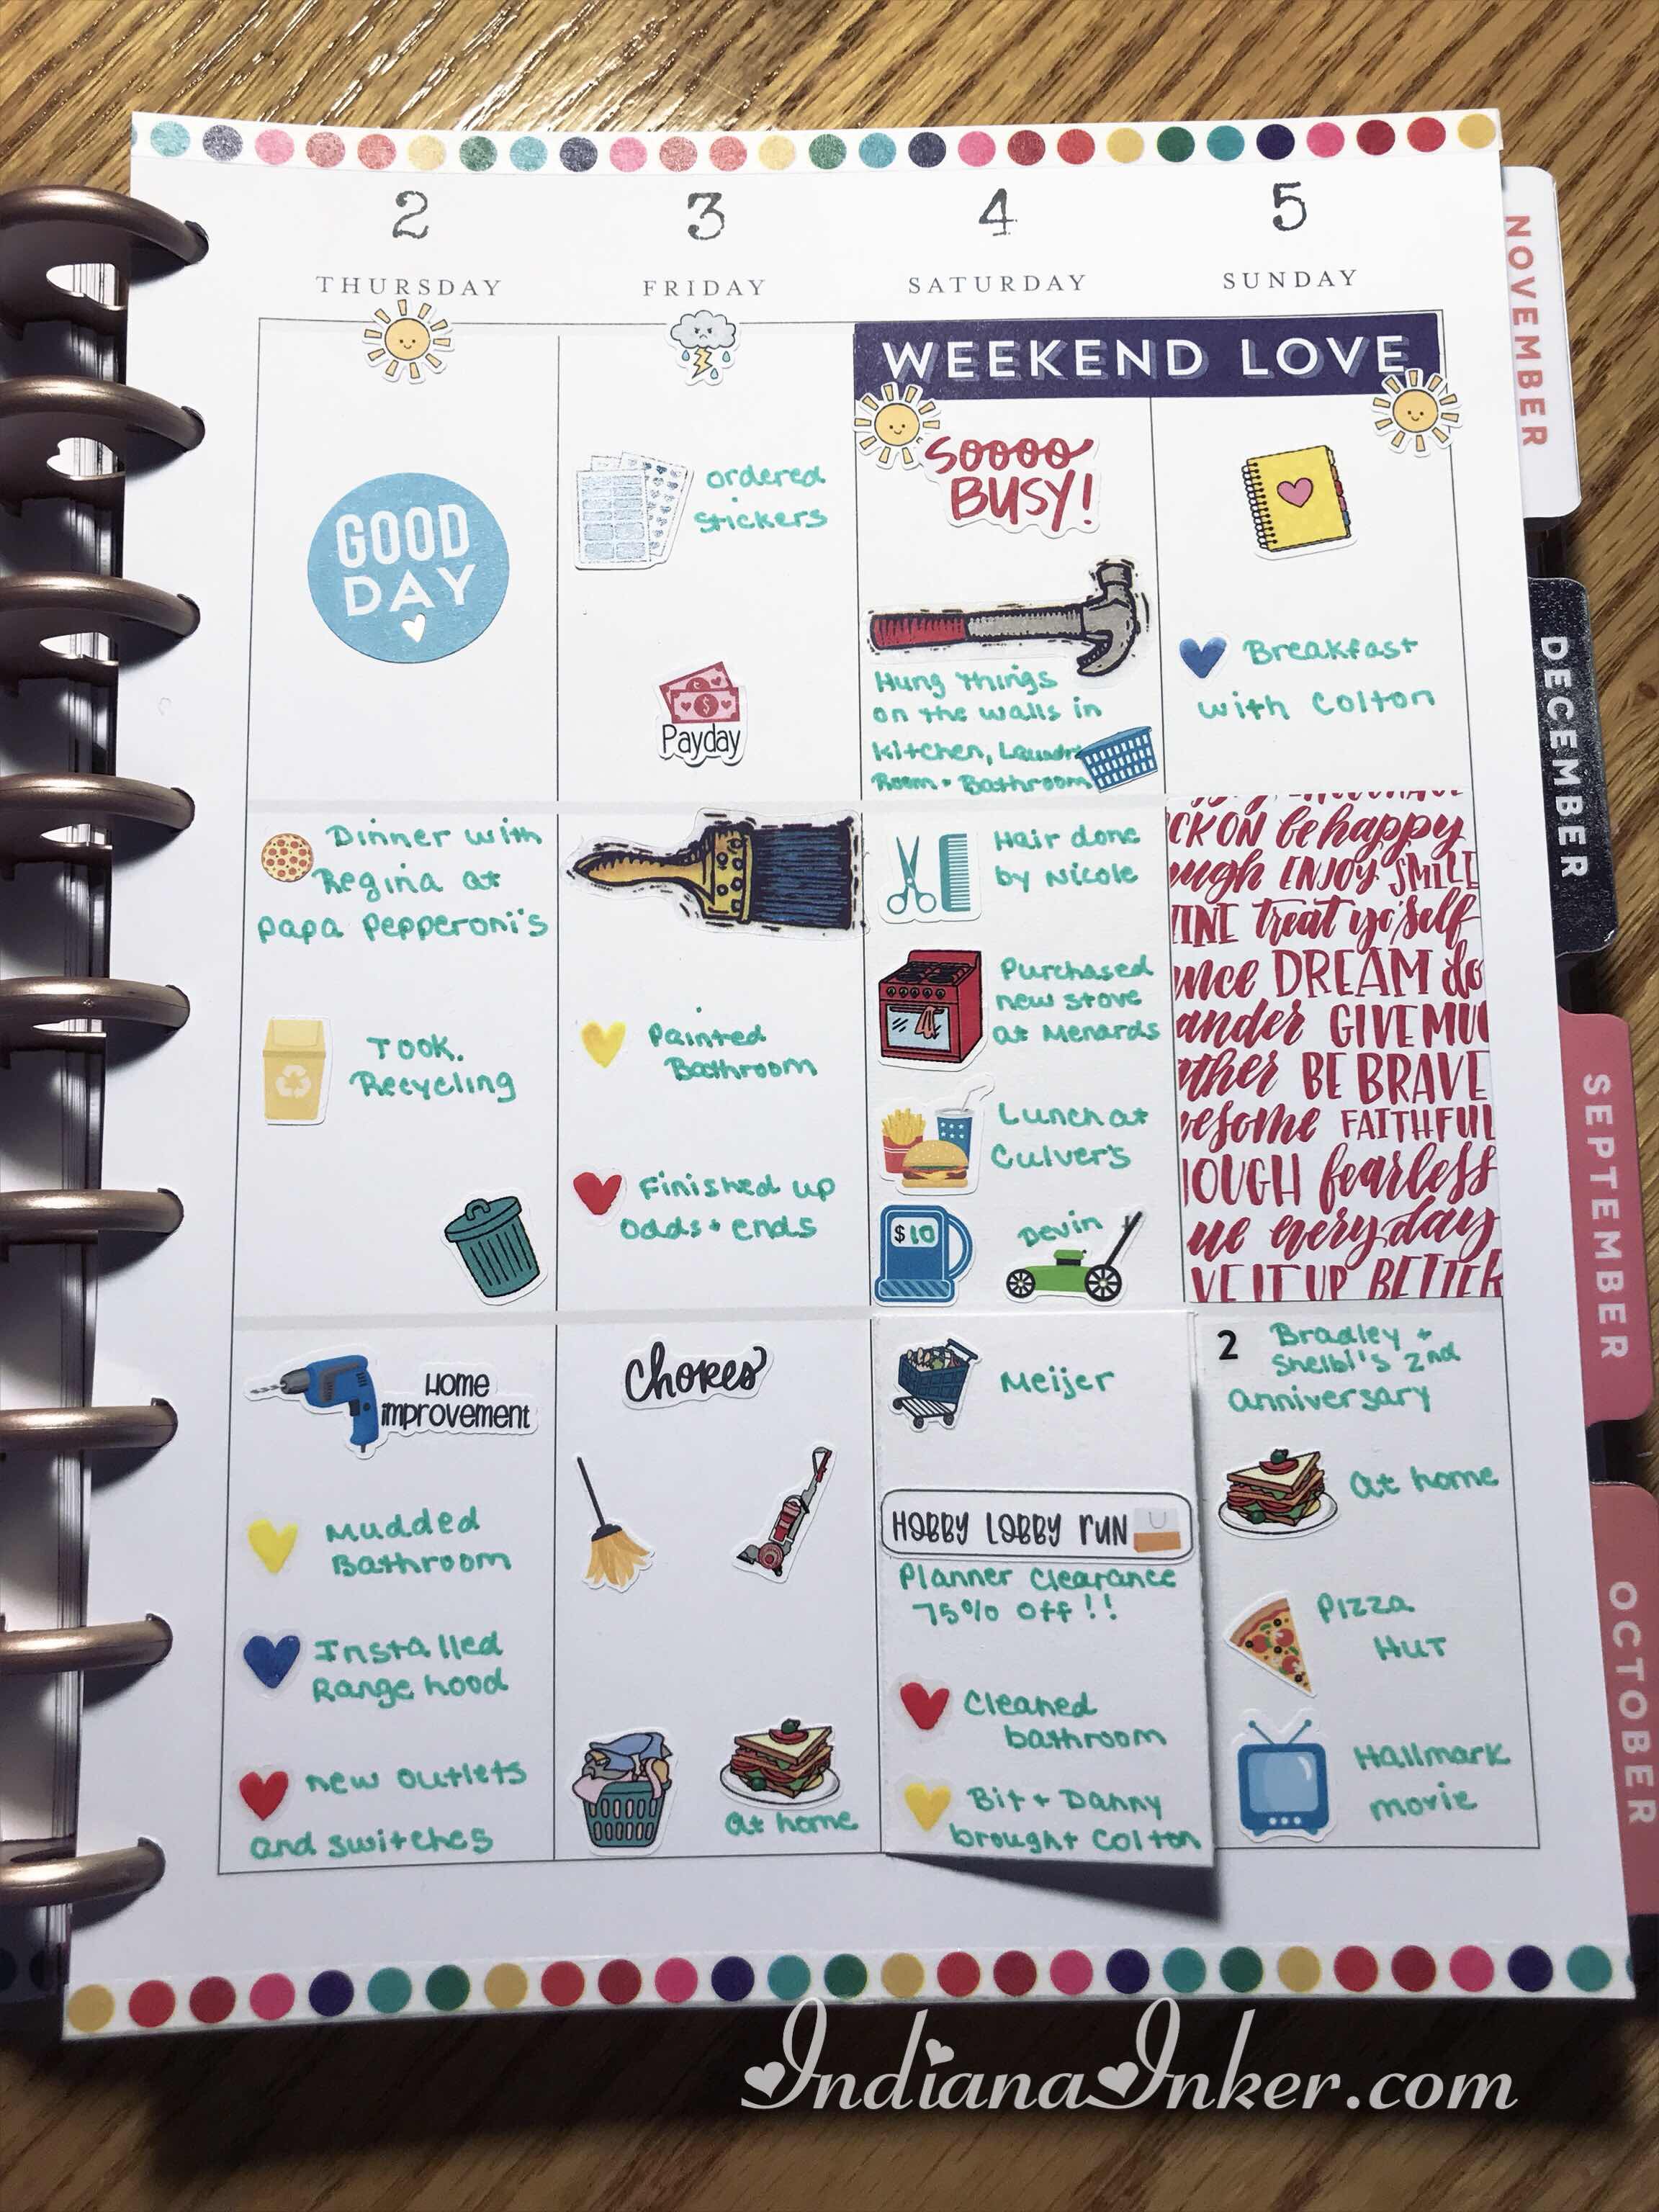 2
THURSDAY
GOOD
DAY
Dinner with
Regina at
papa Pepperoni's
Took.
Recycling
Home
improvement
Mudded
Bathroom
Installed
Range hood
new outlets
and switches
3
FRIDAY
ordered
stickers
Payday
Painted
Bathroom
Finished up
odds + ends
chores
at home
4
SATURDAY
5
SUNDAY
WEEKEND LOVE
SOOOO
BUSY!
Hung things
on the walls in
kitchen, Laundry
Room + Bathroom
Hair done
by Nicole
Purchased
new stove
at Menards
Lunch at
Culver's
$10
Devin
Meijer
HOBBY LOBBY RUN
Planner Clearance
75% off!!
Cleaned
bathroom
Bit + Danny
brought Colton
Breakfast
with Colton
CK ON be happy
ugh ENJOY SMILE
INE treat yo'self
nce DREAM do
ander GIVE MU
ther BE BRAVE
esome FAITHFUL
OUGH fearless
ue every day
VE IT UP BETTER
2
Bradley +
Shelbi's 2nd
anniversary
at home
Pizza
Hut
Hallmark
movie
NOVEMBER
DECEMBER
SEPTEMBER
OCTOBER
IndianaInker.com